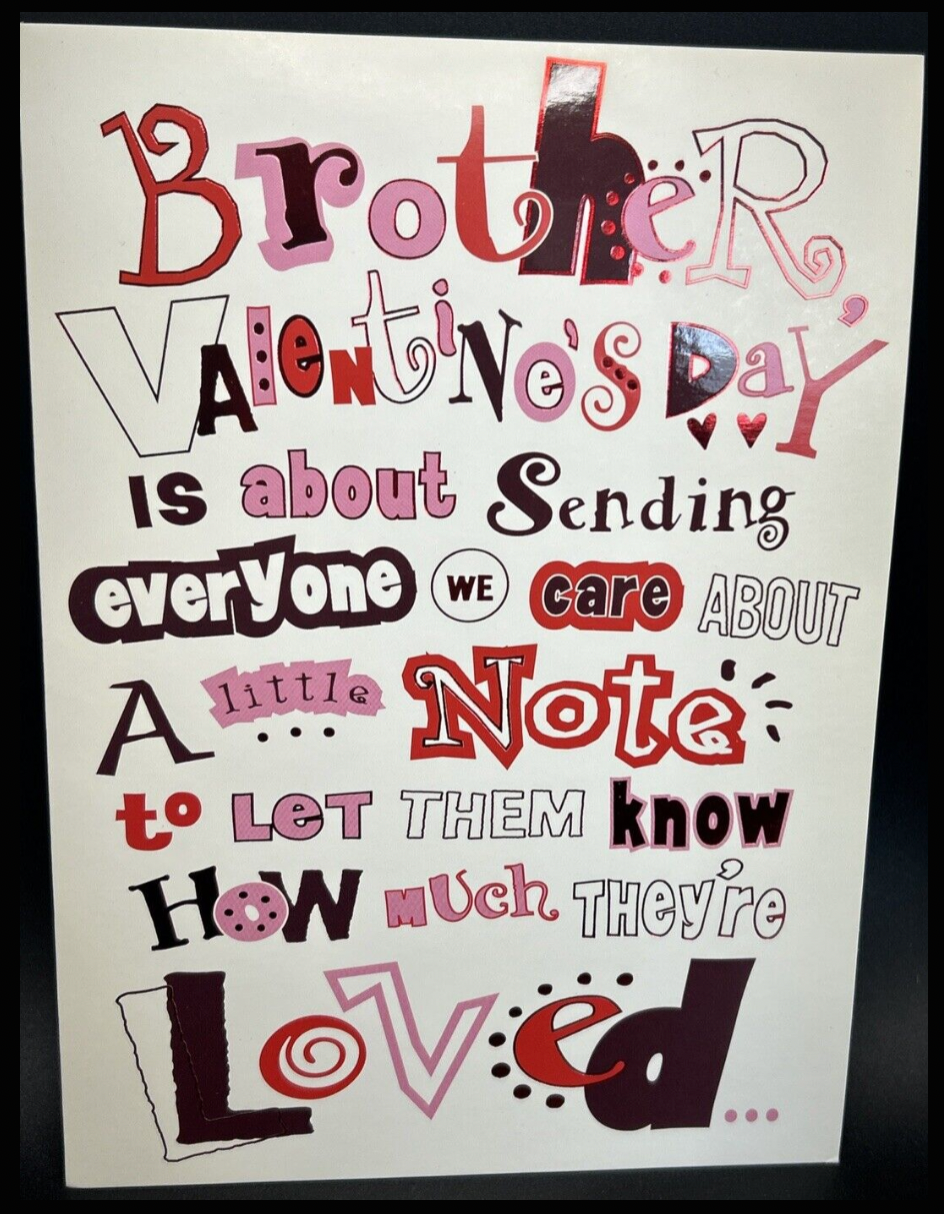 BrotheR,
VAlentiNe's Day
is about Sending
everyone WE care ABOUT
A little Note
to LeT THEM know
HoW MUch THey're
Loved...